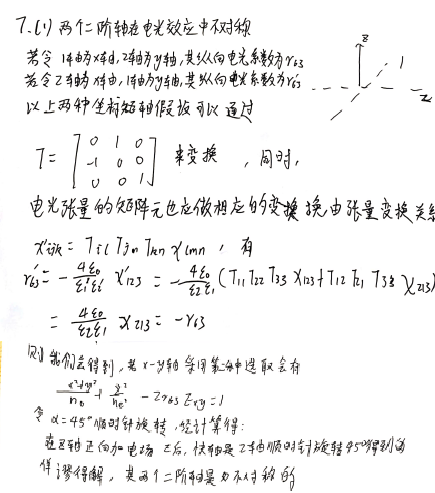 7.(1) 两个二阶轴在电光效应中不对称
若令1轴为x轴,2轴为y轴,其纵向电光系数为γ63
若令2轴为x轴,1轴为y轴,其纵向电光系数为γ'63
以上两种坐标 轴假设可以通过
z
1
2
T = [0 1 0
-1 0 0
0 0 1] 来变换 , 同时,
电光张量的矩阵元也应做相应的变换 换,由张量变换关系
χ'ijk = Til Tjm Tkn χlmn , 有
γ'63 = - 4ε0/ε'1ε'2 χ'123 = - 4ε0/ε2ε1 (T11 T22 T33 χ123 + T12 T21 T33 χ213)
= 4ε0/ε2ε1 χ213 = -γ63
我们会得到, 若x-y轴采用第二种选取会有
x²+y²/n0² + z²/ne² - 2γ63 Ezxy = 1
令 α=45°顺时针旋转, 经计算得:
在z轴正向加电场 后, 快轴是2轴顺时针旋转45°得到的
得解, 其两个二阶轴是 不对称的